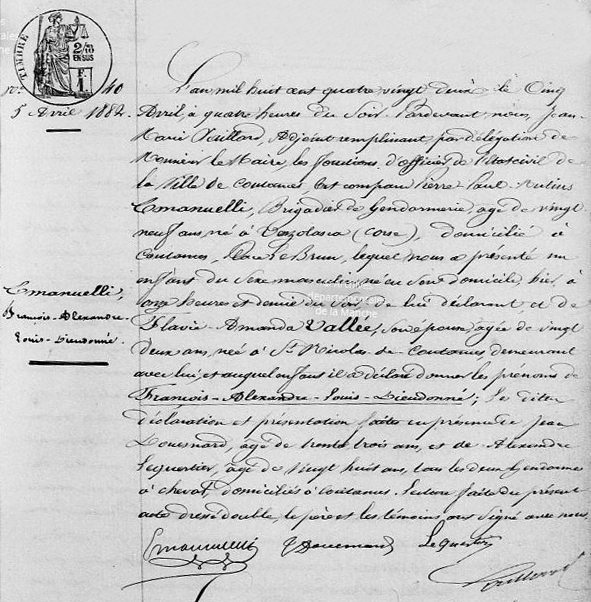 TIMBRE
2/10
EN SUS
F.
1.
n° 40
5 Avril 1882.
Emanuelli,
François-Alexandre
Louis-Dieudonné.
L'an mil huit cent quatre vingt deux le Cinq
Avril, à quatre heures du Soir Pardevant nous, Jean
Marie, Adjoint remplissant par délégation de
Monsieur le Maire, les fonctions d'officier de l'Etat civil de
la Ville de Coutances, Est comparu Pierre Paul
Emanuelli, Brigadier de Gendarmerie, agé de vingt
neuf ans, né à (Corse), domicilié à
Coutances, Place Le Brun, lequel nous a présenté un
enfant du Sexe masculin, né en Son domicile hier, à
onze heures et demie du Soir, de lui déclarant et de
Flavie Amanda Vallée, Son épouse, agée de vingt
deux ans, née à St Nicolas-de-Coutances, demeurant
avec lui, et auquel enfant il a déclaré donner les prénoms de
François-Alexandre-Louis-Dieudonné; Les dites
déclaration et présentation faites en présence de Jean
Douesnard, agé de trente trois ans, et de Alexandre
Lequertier, agé de Vingt huit ans, tous les deux Gendarmes
à cheval, domiciliés à Coutances. Lecture faite du présent
acte dressé double, le père et les témoins ont signé avec nous.
Emanuelli Douesnard Lequertier